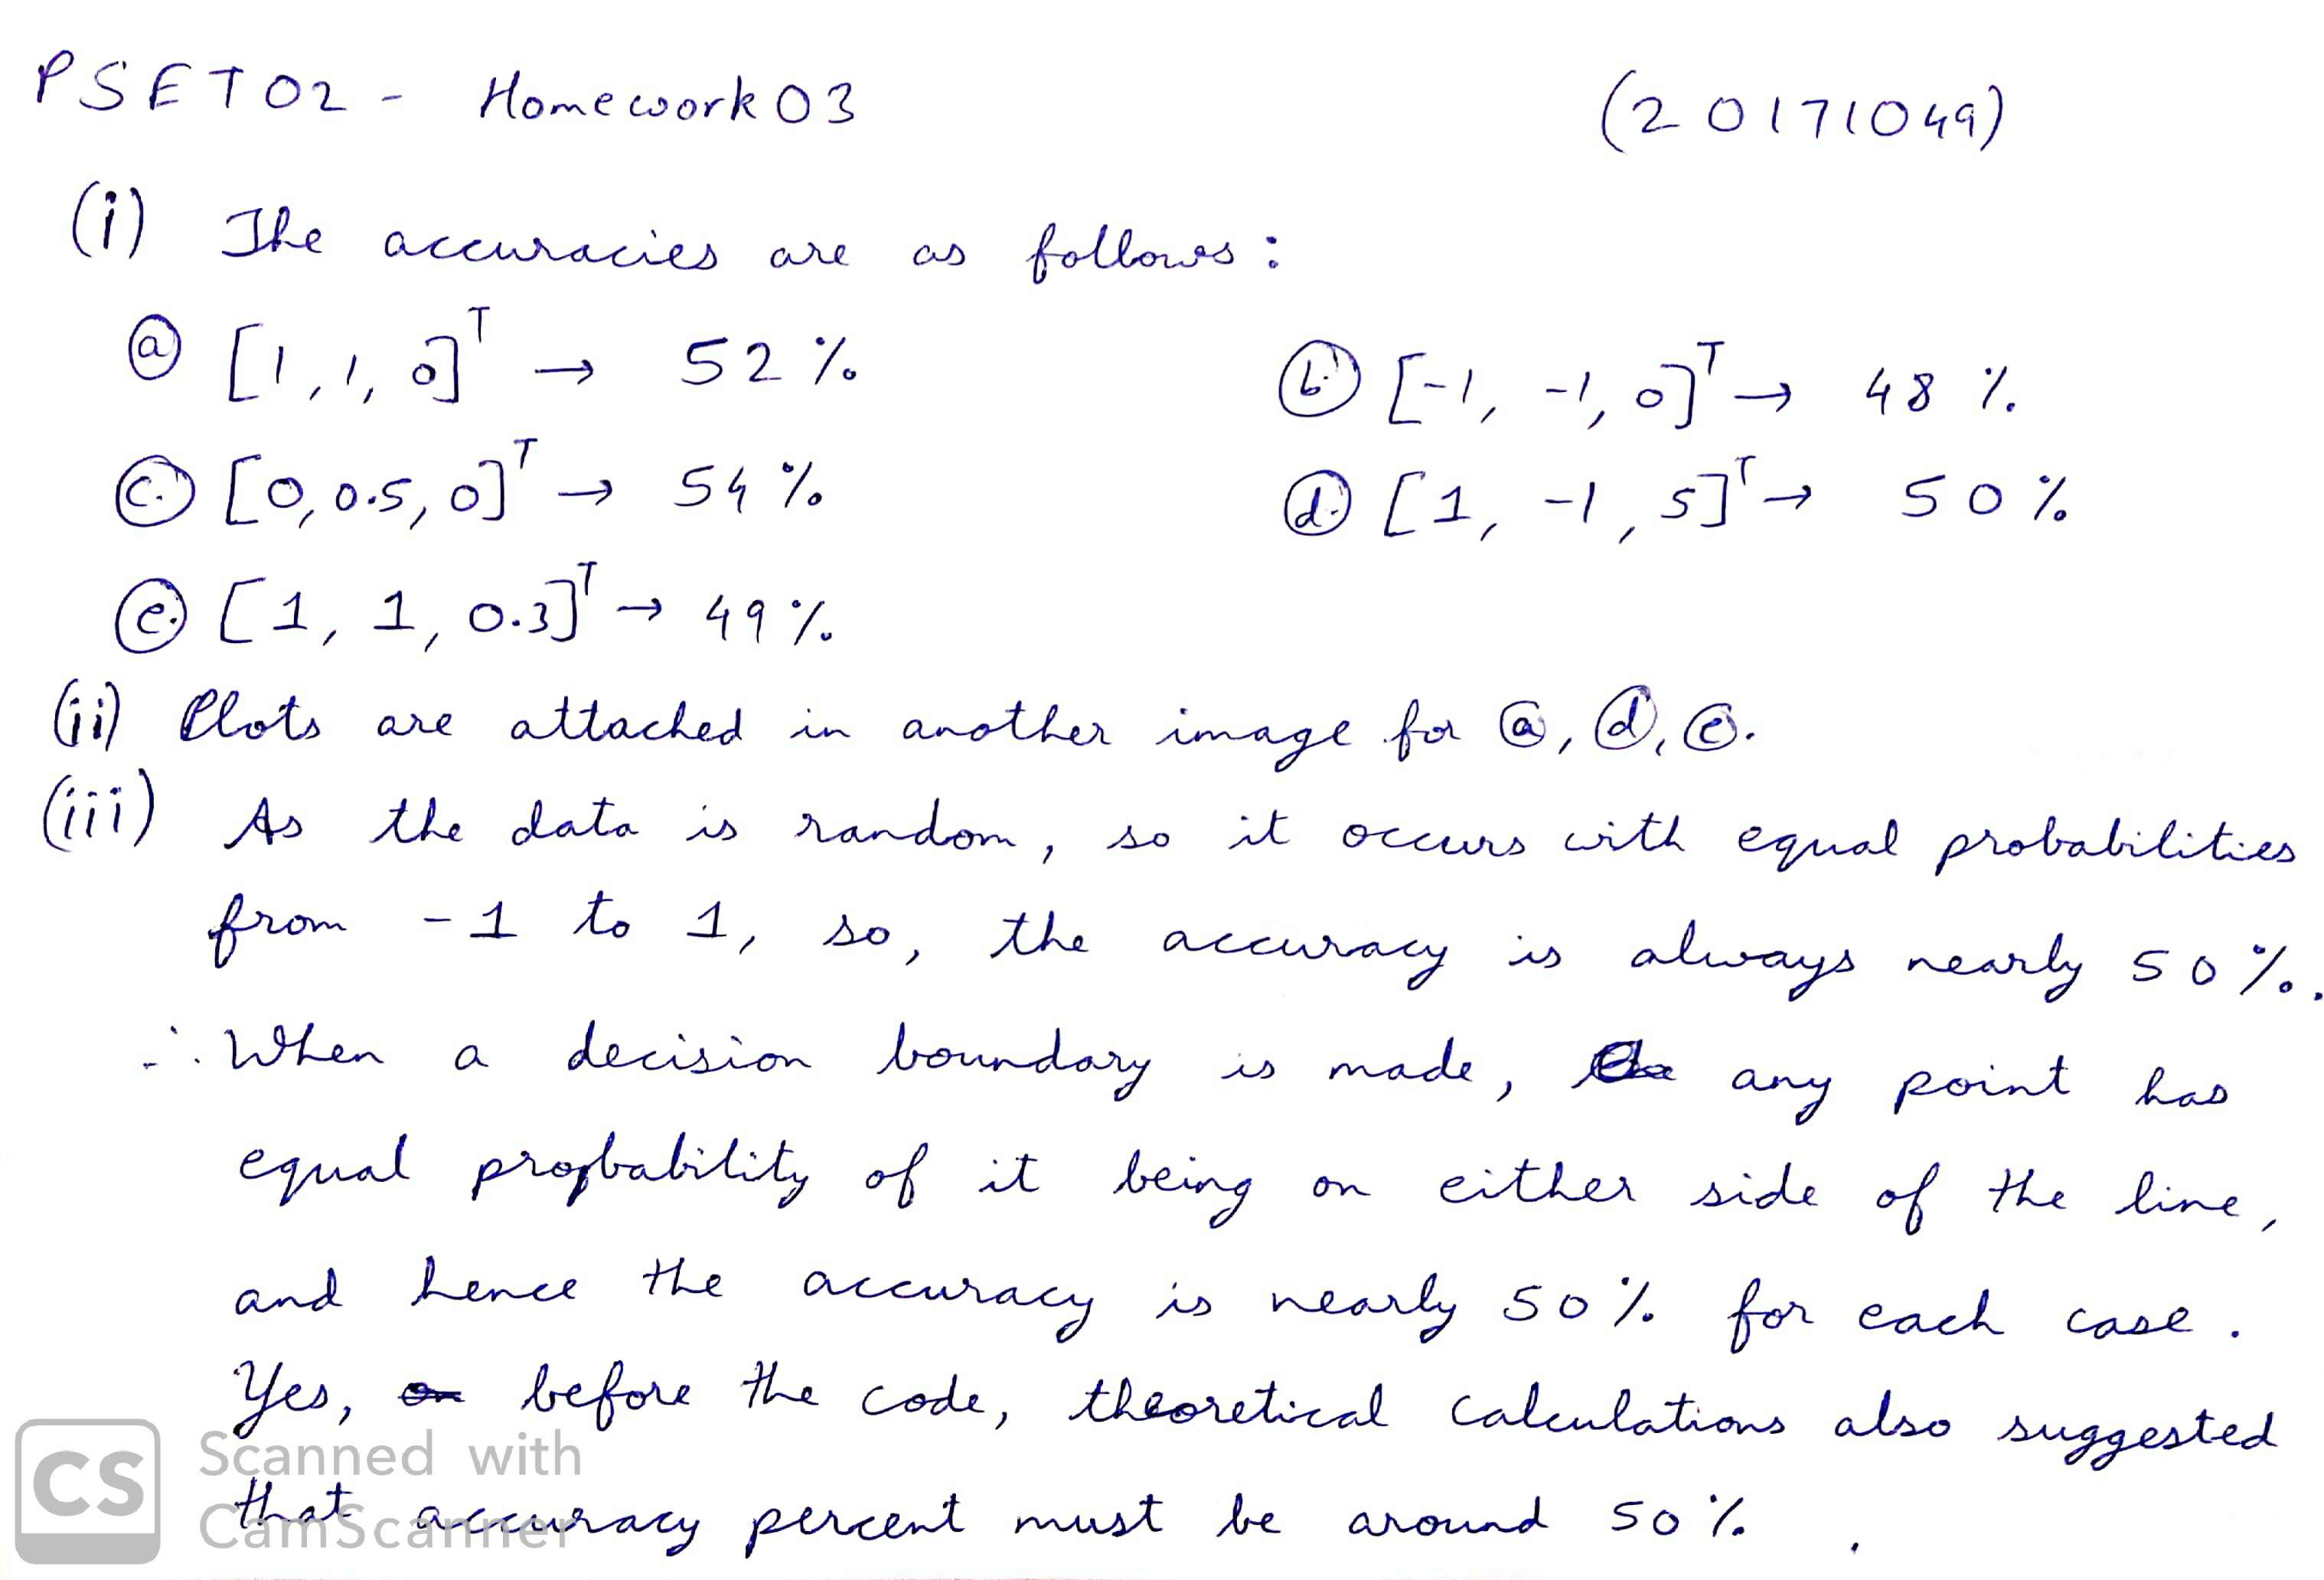 PSET02 - Homework 03 (20171049)
(i) The accuracies are as follows:
ⓐ [1, 1, 0]ᵀ → 52 % ⓑ [-1, -1, 0]ᵀ → 48 %
ⓒ [0, 0.5, 0]ᵀ → 54 % ⓓ [1, -1, 5]ᵀ → 50 %
ⓔ [1, 1, 0.3]ᵀ → 49 %
(ii) Plots are attached in another image for ⓐ, ⓓ, ⓔ.
(iii) As the data is random, so it occurs with equal probabilities
from -1 to 1, so, the accuracy is always nearly 50%.
∴ When a decision boundary is made, any point has
equal probability of it being on either side of the line,
and hence the accuracy is nearly 50% for each case.
Yes, before the code, theoretical calculations also suggested
that accuracy percent must be around 50 % .
CS Scanned with
CamScanner